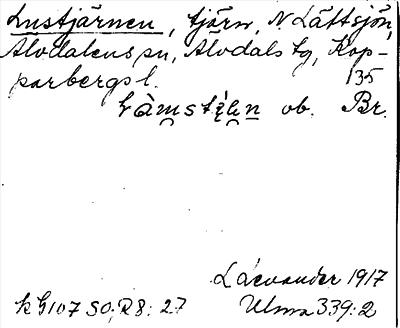 Lustjärnen, tjärn, N Lättsjön,
Älvdalens sn, Älvdals tg, Kop-
parbergs l. 135
ob. Br.
Lævander 1917
k G107 SO; R8: 27 Ulma 339:2